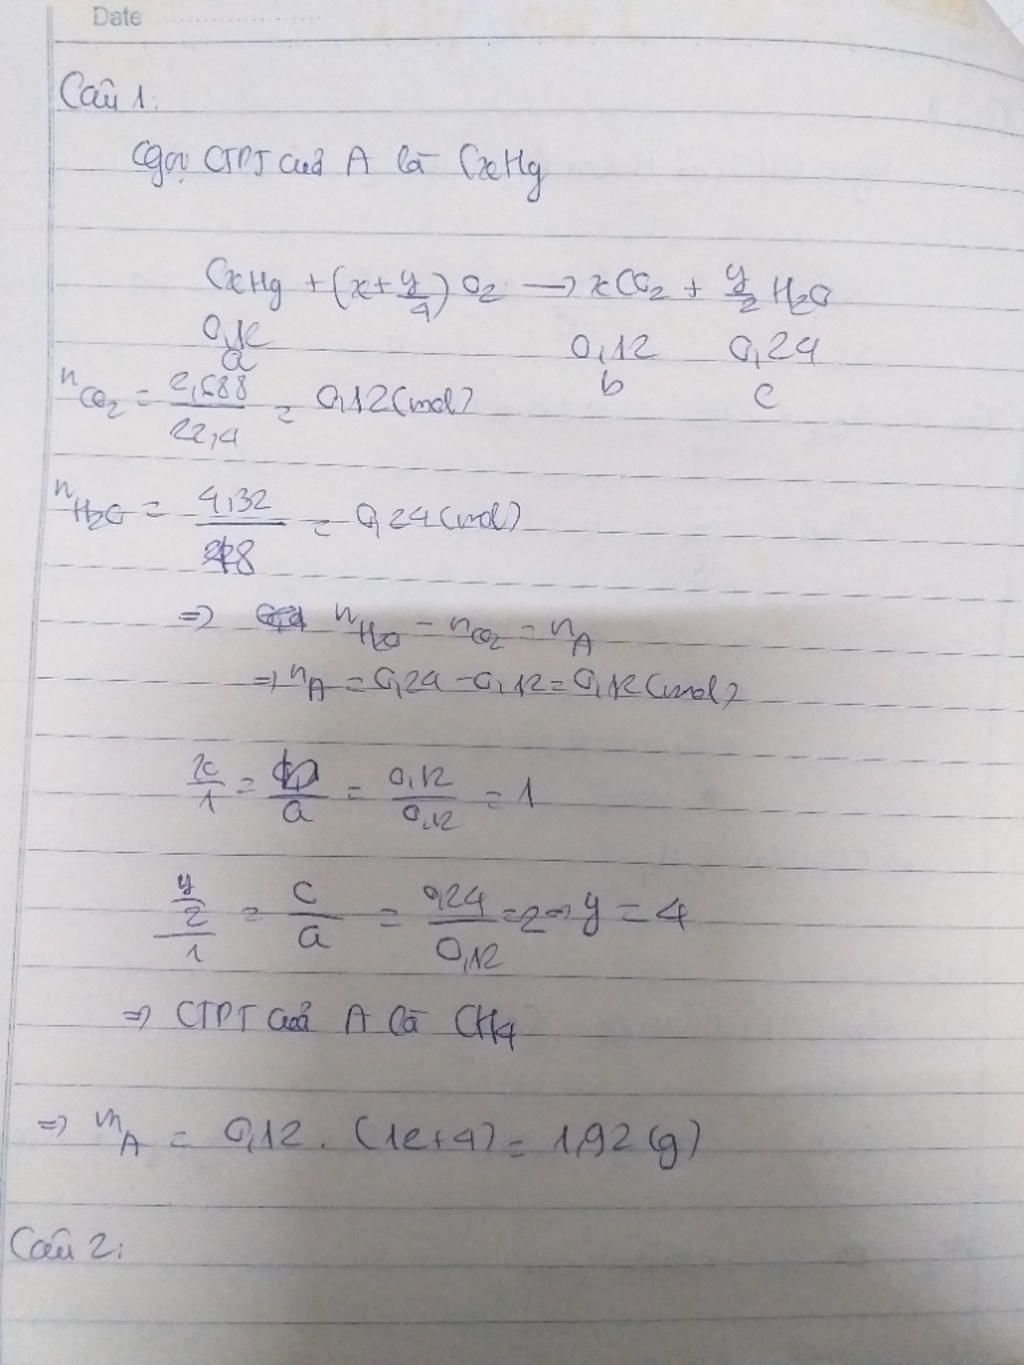 Date
Câu 1:
Gọi CTPT của A là CxHy
CxHy + (x + y/4) O2 → xCO2 + y/2 H2O
0,12 0,12 0,24
a b c
nCO2 = 2,688/22,4 = 0,12 (mol)
nH2O = 4,32/18 = 0,24 (mol)
=> nH2O - nCO2 = nA
=> nA = 0,24 - 0,12 = 0,12 (mol)
x/1 = b/a = 0,12/0,12 = 1
(y/2)/1 = c/a = 0,24/0,12 = 2 => y = 4
=> CTPT của A là CH4
=> mA = 0,12 . (12+4) = 1,92 (g)
Câu 2: